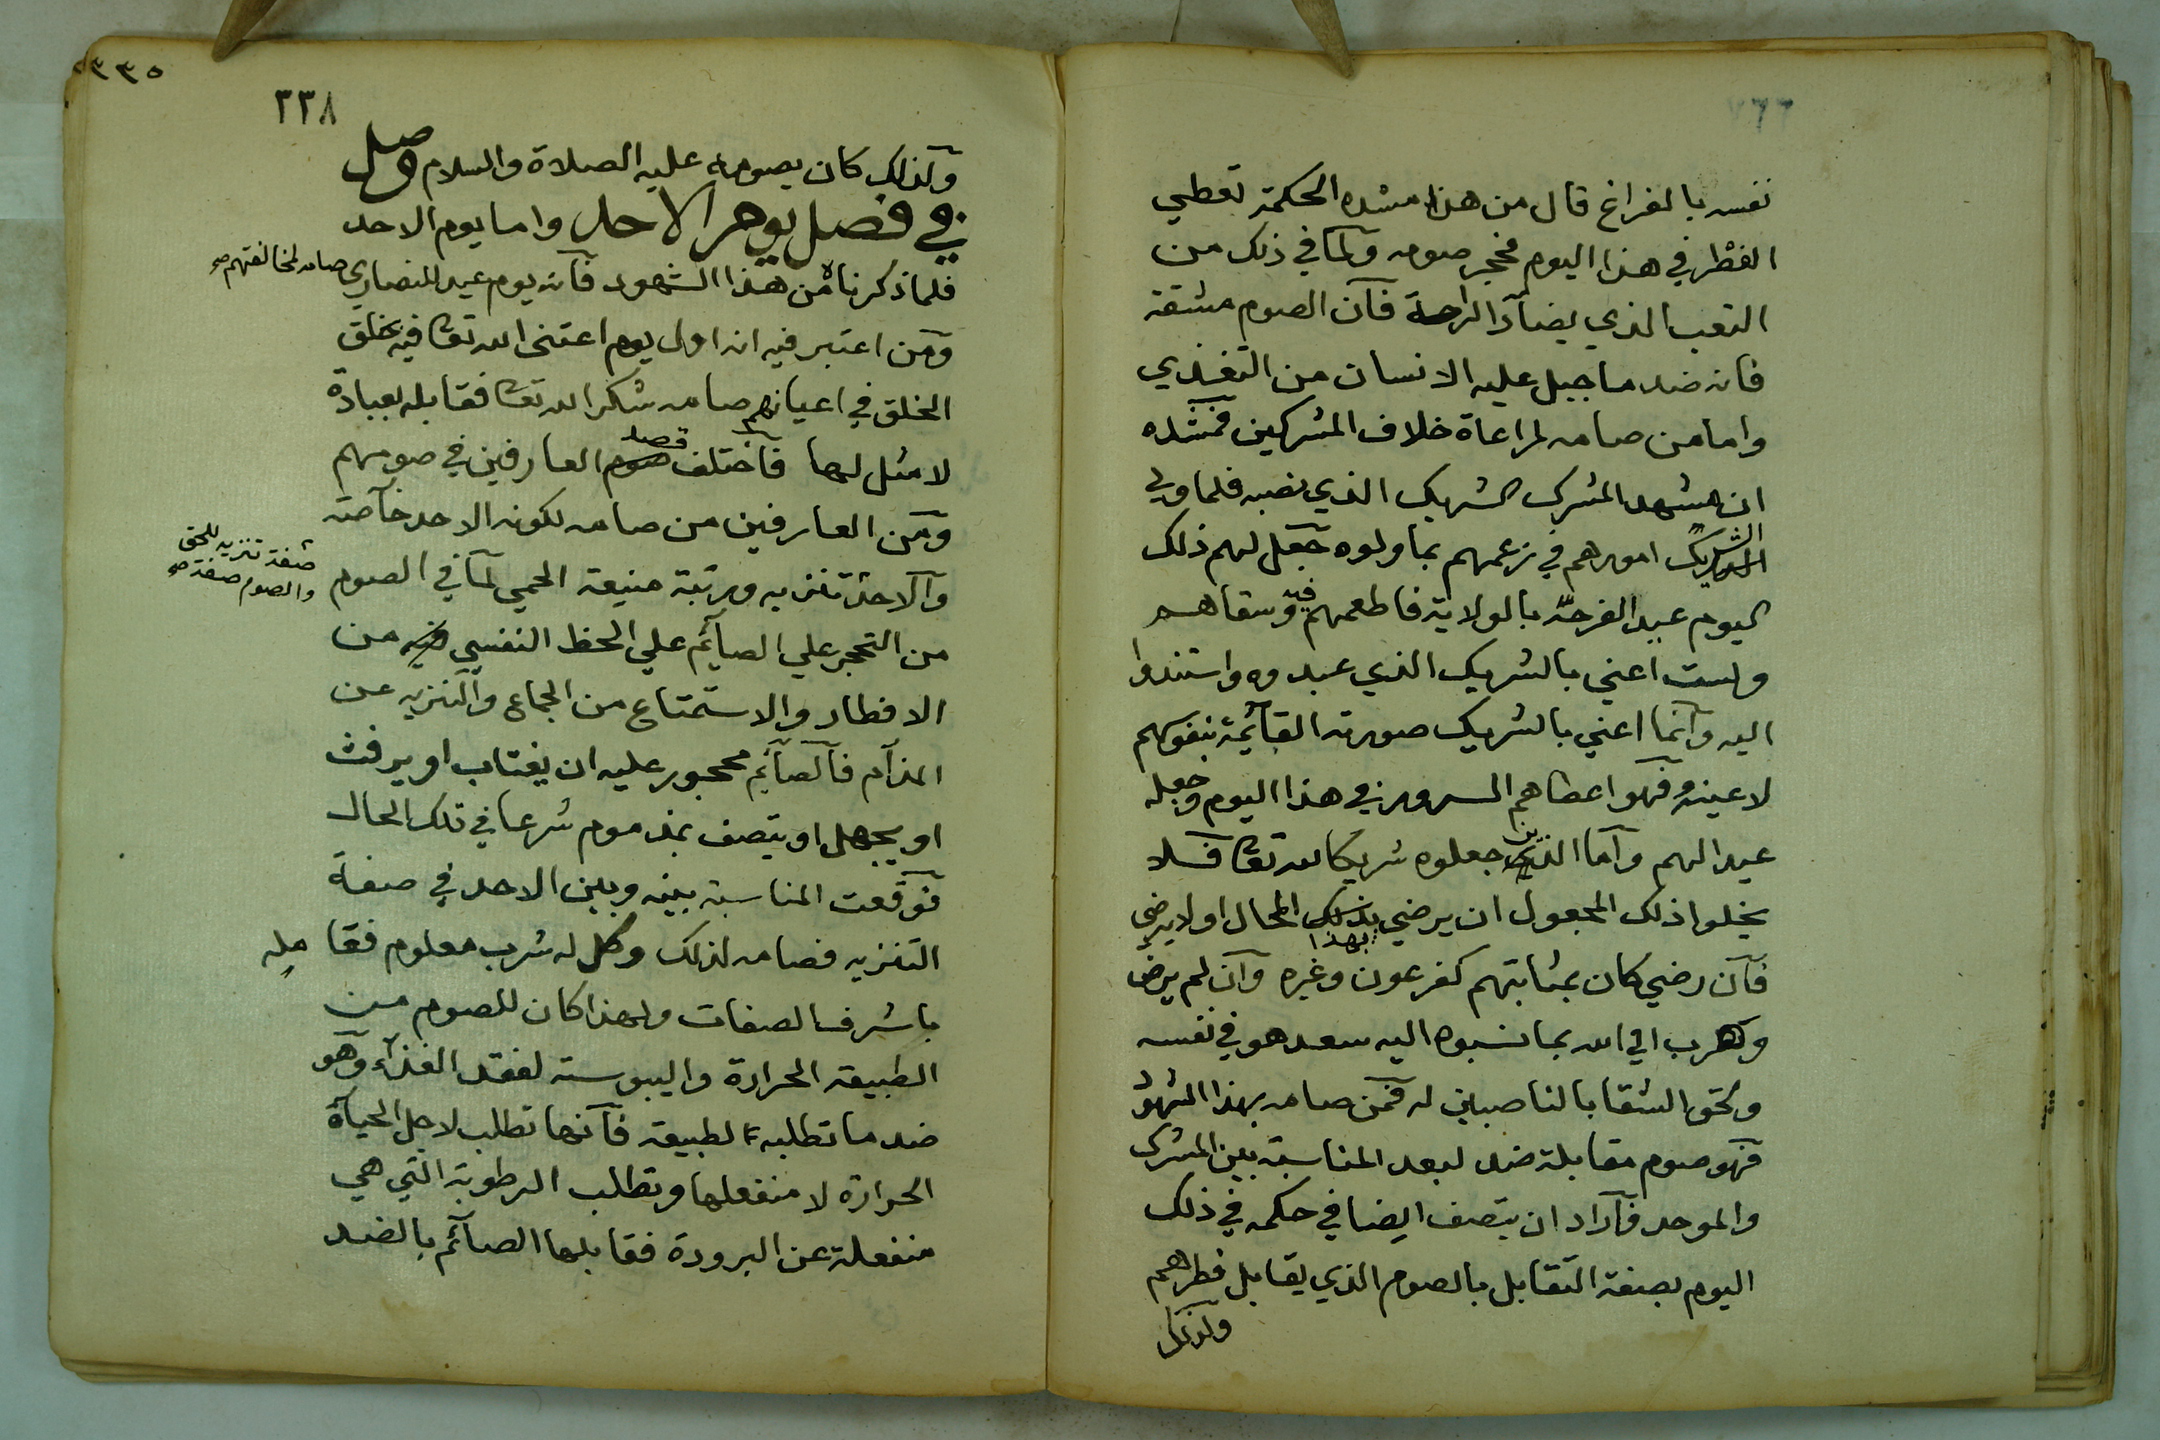 ٧٦٦
نفسه بالفراغ قال من هذا مشهده الحكمة تعطي
الفطر في هذا اليوم فحجر صومه ولما في ذلك من
التعب الذي يضاد الراحة فان الصوم مشقة
فانه ضد ما جبل عليه الانسان من التغذي
واما من صامه لمراعاة خلاف المشركين فمشهده
ان مشهد المشرك الشريك الذي نصبه فلما ولي
الشريك امورهم في زعمهم بما ولوه جعل لهم ذلك
اليوم عيد الفرحه بالولاية فاطعمهم فيه وسقاهم
ولست اعني بالشريك الذي عبدوه واستندوا
اليه وانما اعني بالشريك صورته القائمة بنفوسهم
لا عينه فهو اعطاهم السرور في هذا اليوم وجعله
عيدا لهم واما الذين جعلوه شريكا لله تعا فلا
يخلوا ذلك المجعول ان يرضي بهذا المحال او لا يرضي
فان رضي كان بمثابتهم كفرعون وغيره وان لم يرض
وهرب الي الله بما نسبوه اليه سعد هو في نفسه
ولحق الشقا بالناصبين له فمن صامه بهذا الشهود
فهو صوم مقابلة ضد لبعد المناسبة بين المشرك
والموحد فاراد ان يتصف ايضا في حكمه في ذلك
اليوم بصفة التقابل بالصوم الذي يقابل فطرهم
ولذلك
٣٣٥
٣٣٨
ولذلك كان يصومه عليه الصلاة والسلام وصل
في فصل يوم الاحد واما يوم الاحد
فلما ذكرناه من هذا الشهود فانه يوم عيد للنصاري صامه لمخالفتهم صح
ومن اعتبر فيه انه اول يوم اعتنى الله تعا فيه بخلق
الخلق في اعيانهم صامه شكرا لله تعا فقابله بعبادة
لا مثل لها فاختلف قصد العارفين في صومهم
ومن العارفين من صامه لكونه الاحد خاصة
والاحد صفة تنزيه للحق تنزيه ومرتبة منيعة الحمي لما في الصوم
والصوم صفة صح
من التحجر علي الصايم علي الحظ النفسي من
الافطار والاستمتاع من الجماع والتنزيه عن
المذام فالصائم محجور عليه ان يغتاب او يرفث
او يجهل او يتصف بمذموم شرعا في تلك الحال
فوقعت المناسبة بينه وبين الاحد في صفة
التنزيه فصامه لذلك وكل له شرب معلوم فقا مله
باشرف الصفات ولهذا كان للصوم من
الطبيعة الحرارة واليبوسة لفقد الغذاء وهو
ضد ما تطلبه الطبيعة فانها تطلب لاجل الحياة
الحرارة لا منفعلها وتطلب الرطوبة التي هي
منفعلة عن البرودة فقابلها الصائم بالضد